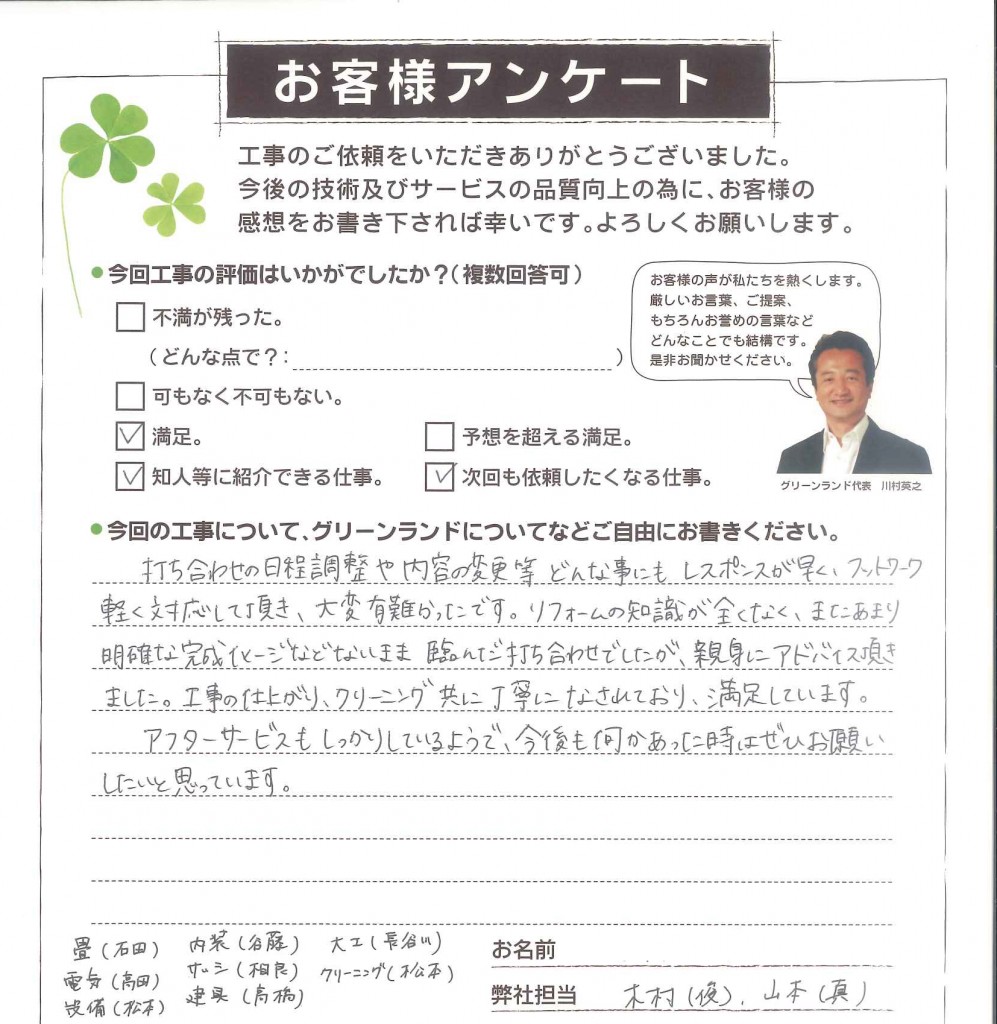 お客様アンケート
工事のご依頼をいただきありがとうございました。
今後の技術及びサービスの品質向上の為に、お客様の
感想をお書き下されば幸いです。よろしくお願いします。
●今回工事の評価はいかがでしたか？（複数回答可）
不満が残った。
（どんな点で？：）
可もなく不可もない。
満足。
予想を超える満足。
知人等に紹介できる仕事。
次回も依頼したくなる仕事。
お客様の声が私たちを熱くします。
厳しいお言葉、ご提案、
もちろんお誉めの言葉など
どんなことでも結構です。
是非お聞かせください。
グリーンランド代表　川村英之
●今回の工事について、グリーンランドについてなどご自由にお書きください。
打ち合わせの日程調整や内容の変更等 どんな事にも レスポンスが早く、フットワーク
軽く対応して頂き、大変有難かったです。リフォームの知識が全くなく、またあまり
明確な完成イメージなどないまま 臨んだ打ち合わせでしたが、親身にアドバイス頂き
ました。工事の仕上がり、クリーニング共に丁寧になされており、満足しています。
アフターサービスもしっかりしているようで、今後も何かあった時はぜひお願い
したいと思っています。
畳（石田）
電気（高田）
設備（松本）
内装（谷藤）
サッシ（相良）
建具（高橋）
大工（長谷川）
クリーニング（松本）
お名前
弊社担当　木村（俊）、山本（真）